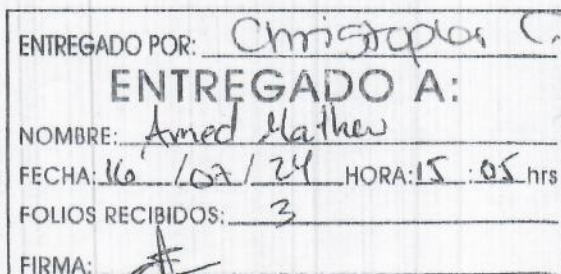 ENTREGADO POR: Christopher C.
ENTREGADO A:
NOMBRE: Amed Mathew
FECHA: 16 / 07 / 24 HORA: 15 : 05 hrs
FOLIOS RECIBIDOS: 3
FIRMA: